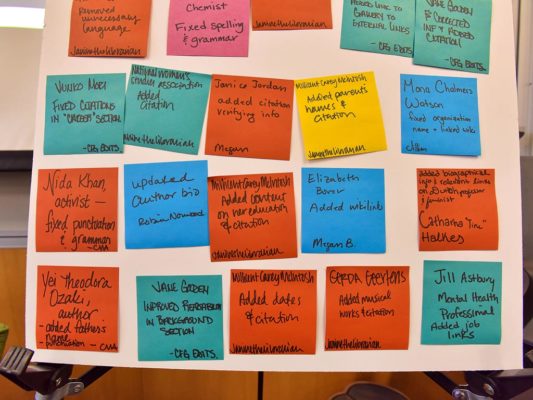 Removed
unnecessary
language
Janinethelibrarian
Chemist
Fixed spelling
& grammar
Janinethelibrarian
Added link to
Gallery to
External links
- CFG EDITS
Vane Golden
& corrected
info & added
citation
- CFG EDITS.
Yuniko Mori
Fixed citations
in "career" section
- CFG EDITS
National Women's
Studies Association
Added
Citation
Janinethelibrarian
Janice Jordan
added citation
verifying info
Megan
Millicent Carey McIntosh
Added parents
names &
citation
Janinethelibrarian
Mona Chalmers
Watson
fixed organization
name + linked wiki
Nida Khan,
activist —
fixed punctuation
& grammar - CMA
updated
author bio
Robin Norwood
Millicent Carey McIntosh
Added content
on her education
& citation
Janinethelibrarian
Elizabeth
Added wikilink
Megan B.
added biographical
info & relevant links
on Dutch professor
& feminist
Catharina "Tine"
Halkes
Yei Theodora
Ozaki,
author
- added father's
name
- punctuation - CMA
Vane Golden
Improved readability
in background
section
- CFG EDITS.
Millicent Carey McIntosh
Added dates
& citation
Janinethelibrarian
Gerda Geertens
Added musical
works & citation
Janinethelibrarian
Jill Astbury
Mental Health
Professional
Added job
links